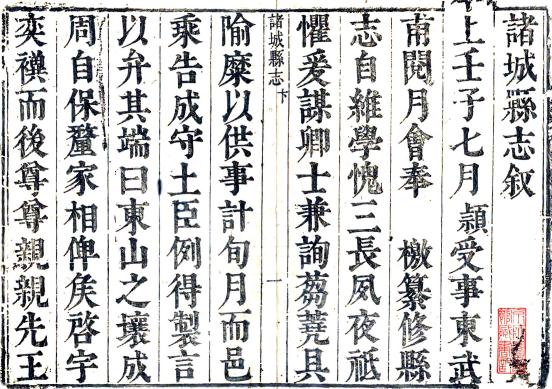 諸城縣志叙
上壬子七月 頴受事東武
甫閱月會奉 檄纂修縣
志自維學愧三長夙夜祗
懼爰謀卿士兼詢蒭蕘具
諸城縣志 卞 一
隃糜以供事計旬月而邑
乘告成守土臣例得製言
以弁其端曰東山之壤成
周自保釐家相俾矦啓宇
奕禩而後尊尊親親先王